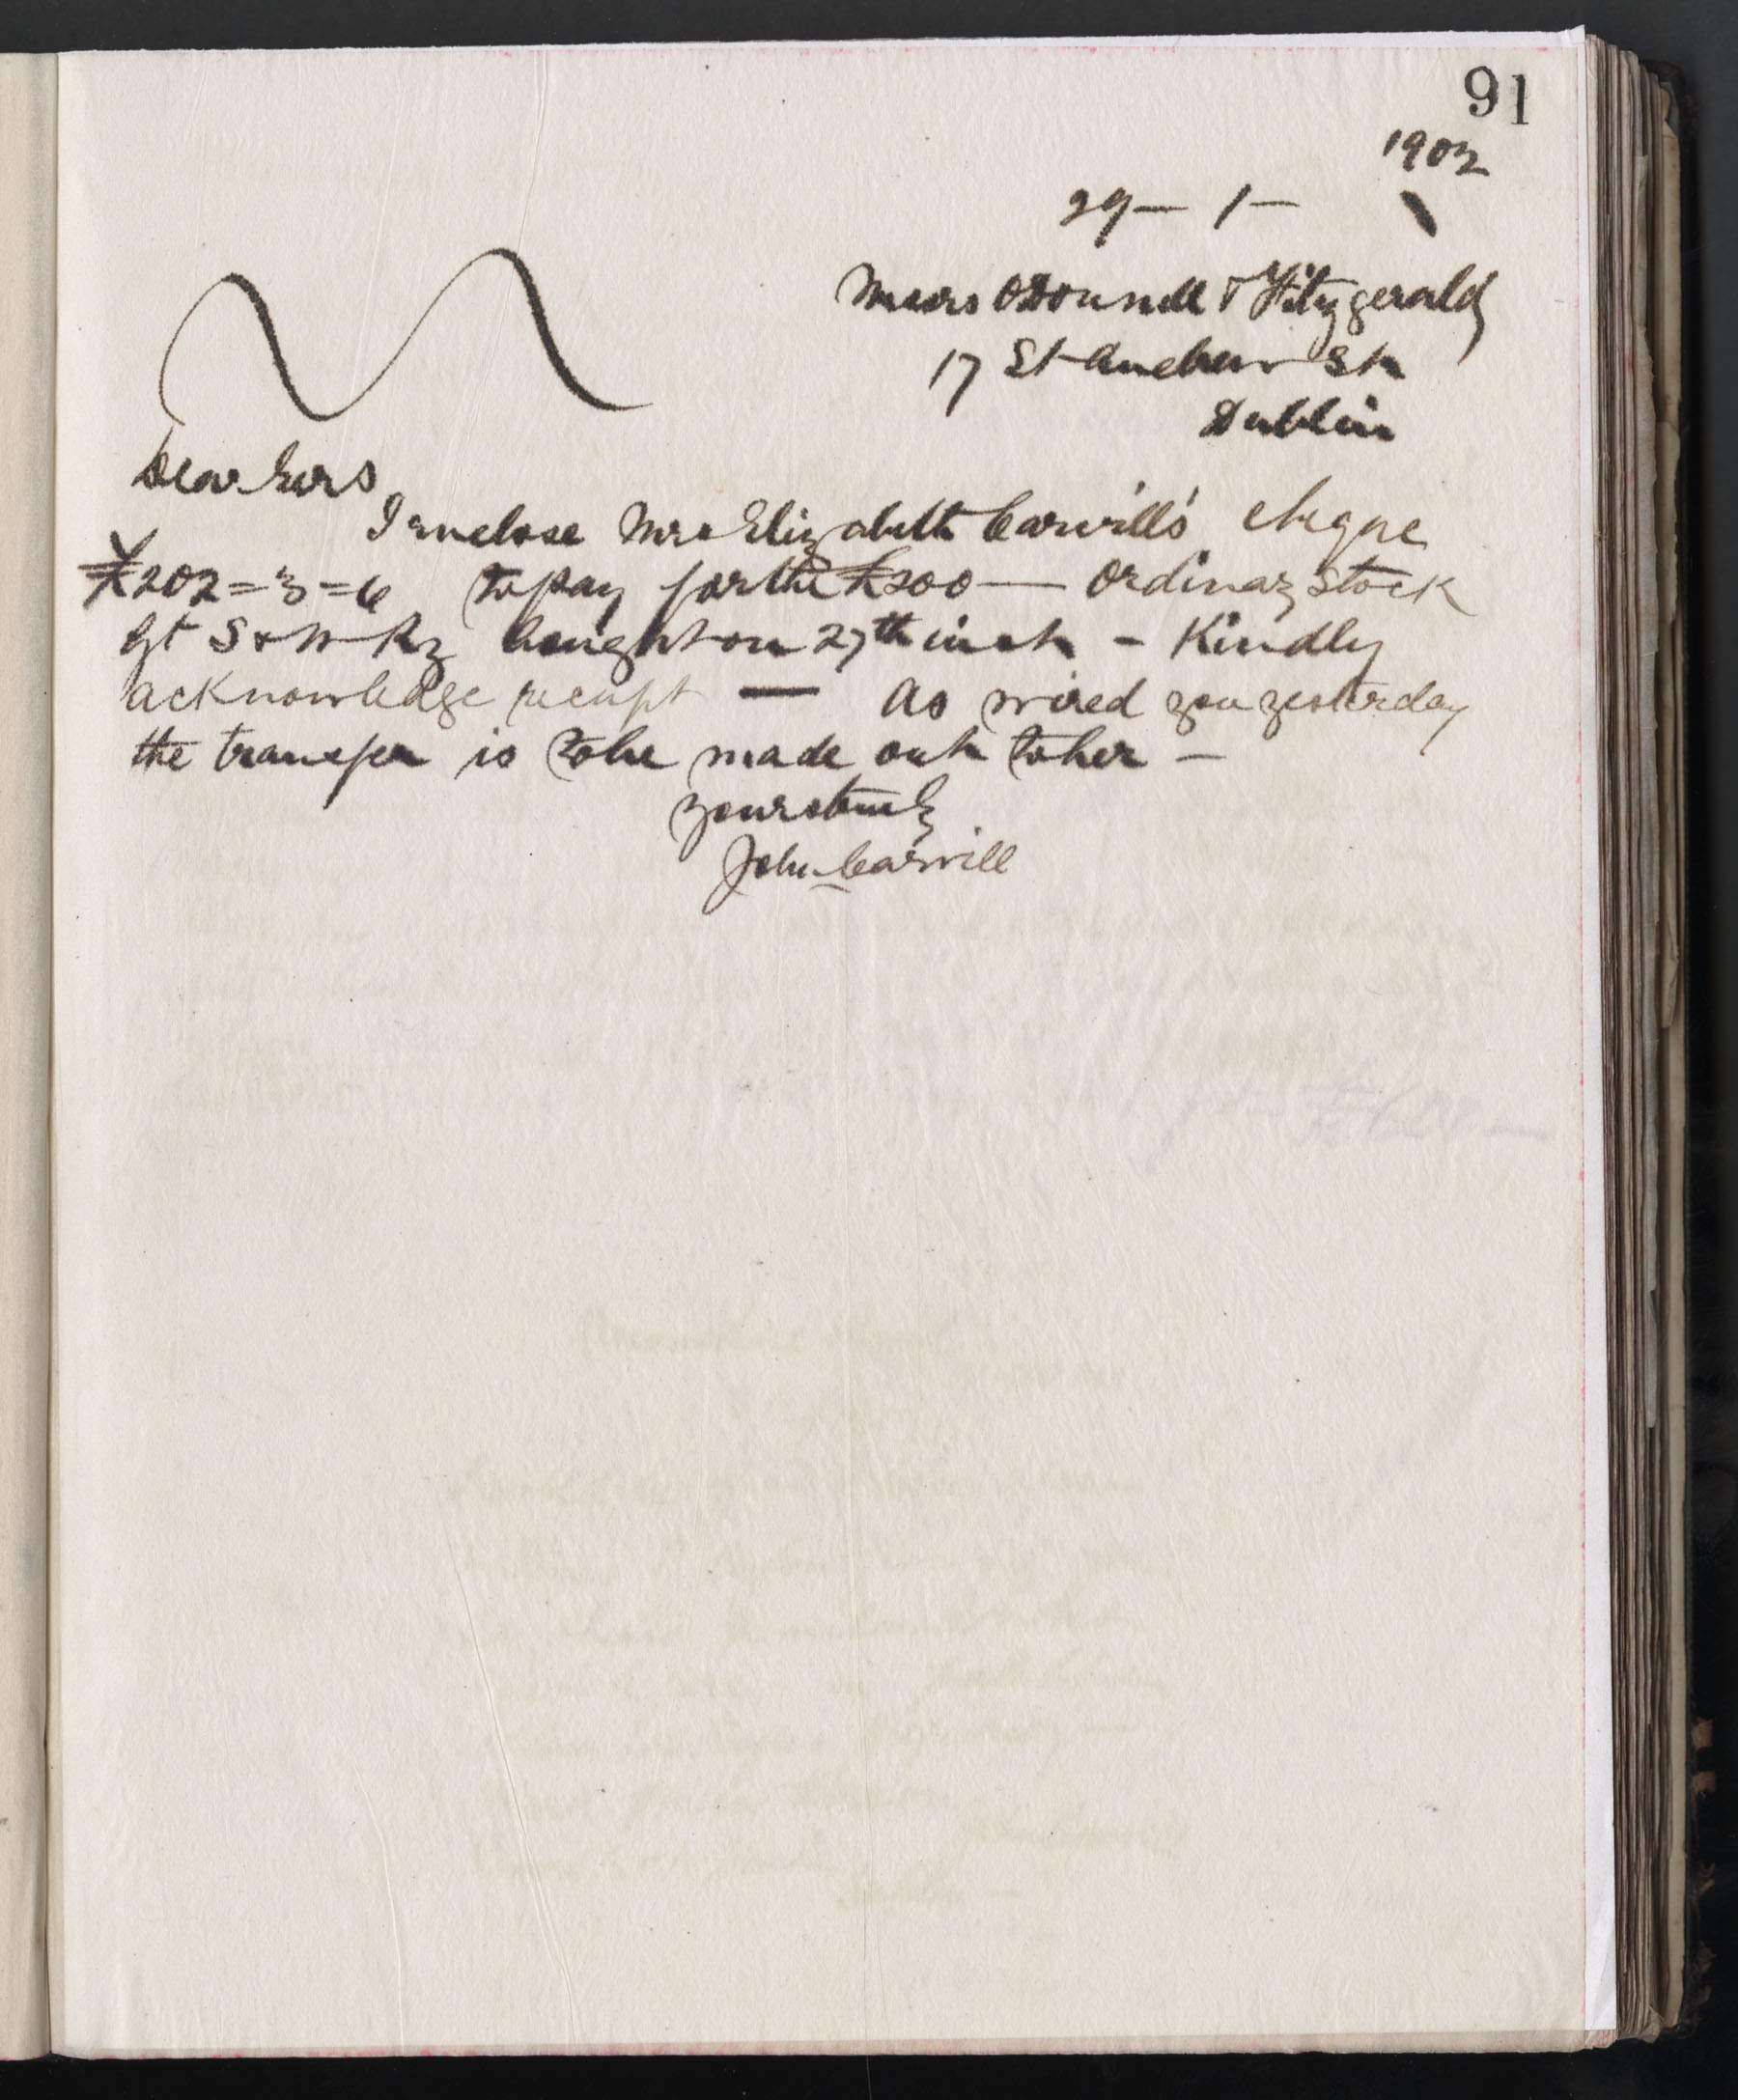 91
1902
29 — 1 —
Messrs O'Donnell & Fitzgerald
17 St Andrew St
Dublin
Dear Sirs
I enclose Mrs Elizabeth Carvill's cheque
£202 = 3 = 6 to pay for the £200 — Ordinary Stock
Gt S & W Ry bought on 27th inst - Kindly
acknowledge receipt — As wired you yesterday
the transfer is to be made out to her —
Yours truly
John Carvill